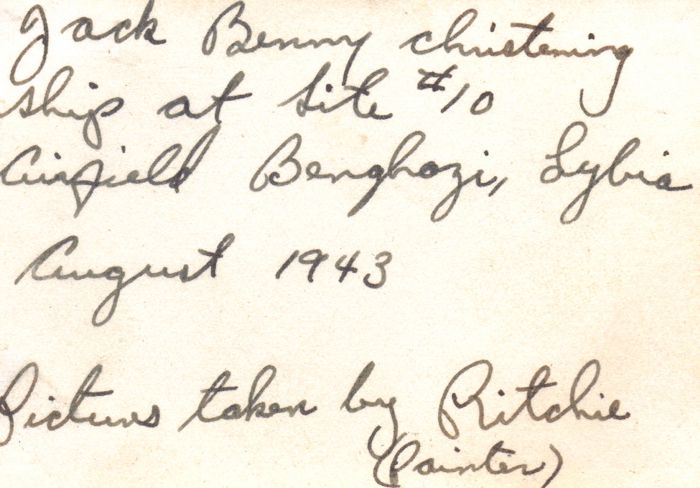 Jack Benny christening
ship at Site #10
Airfield Benghazi, Lybia
August 1943
Pictures taken by Ritchie
(Painter)